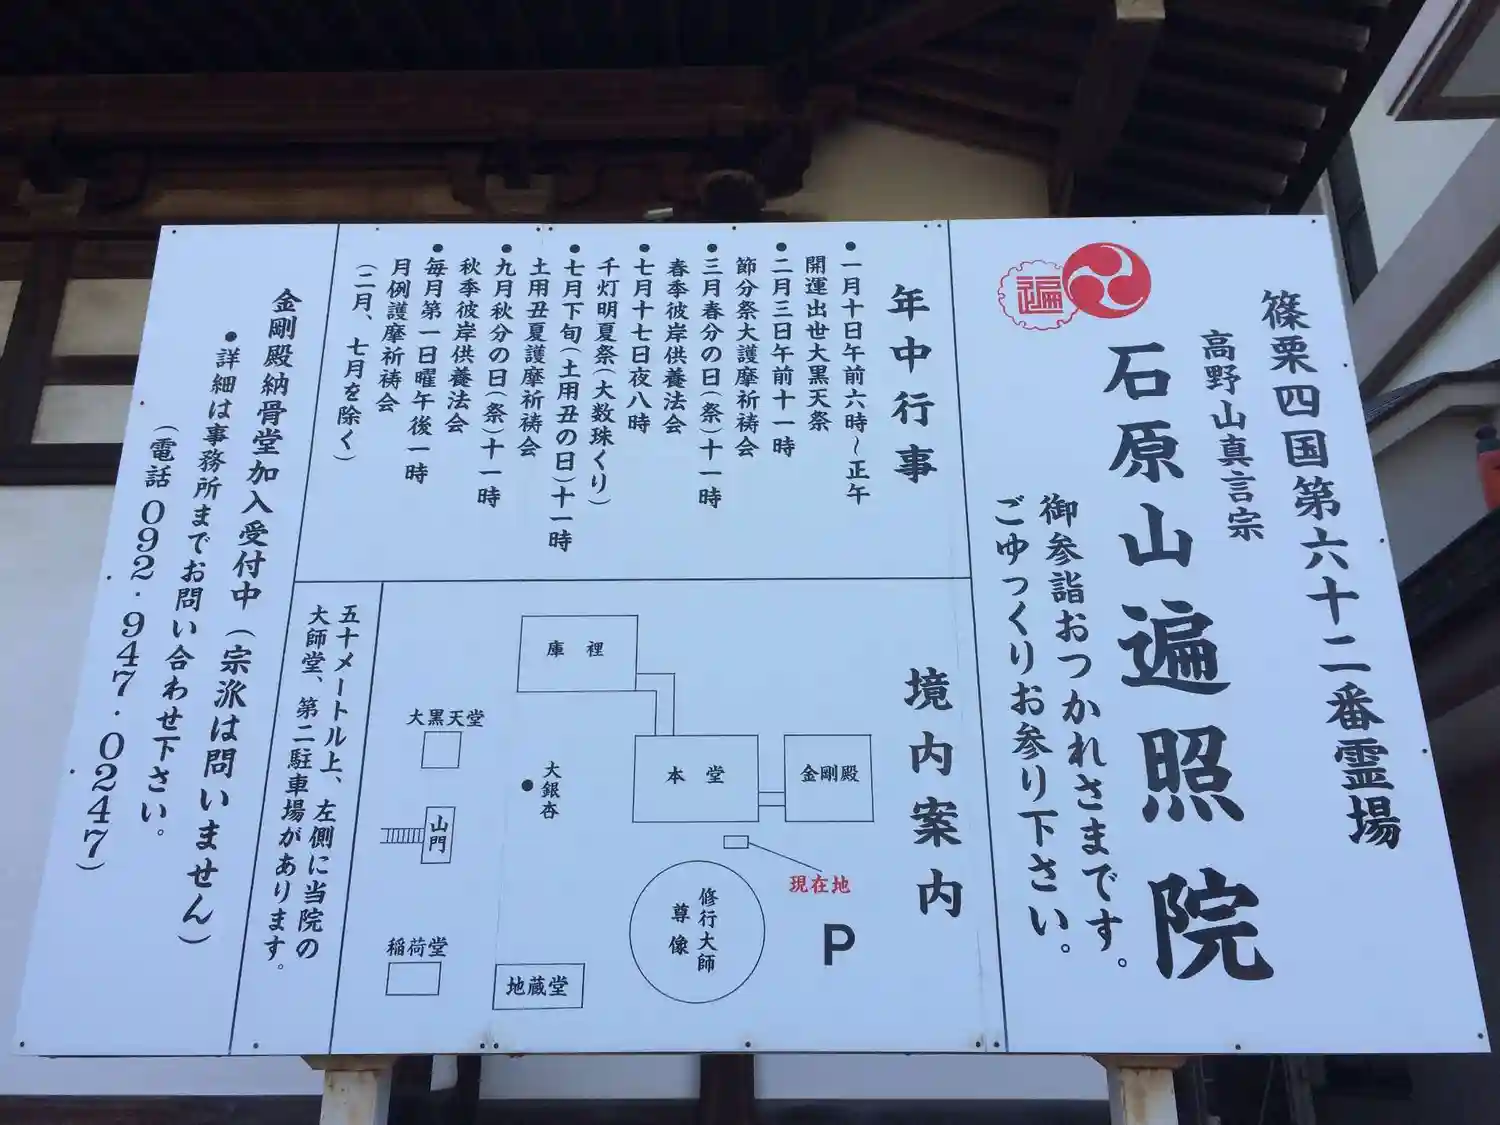 篠栗四国第六十二番霊場
高野山真言宗
遍
石原山遍照院
御参詣おつかれさまです。
ごゆっくりお参り下さい。
年中行事
●一月十日午前六時～正午
開運出世大黒天祭
●二月三日午前十一時
節分祭大護摩祈祷会
●三月春分の日(祭)十一時
春季彼岸供養法会
●七月十七日夜八時
千灯明夏祭(大数珠くり)
●七月下旬(土用丑の日)十一時
土用丑夏護摩祈祷会
●九月秋分の日(祭)十一時
秋季彼岸供養法会
●毎月第一日曜午後一時
月例護摩祈祷会
(二月、七月を除く)
境内案内
庫裡
本堂
金剛殿
現在地
P
修行大師
尊像
大銀杏
地蔵堂
大黒天堂
山門
稲荷堂
五十メートル上、左側に当院の
大師堂、第二駐車場があります。
金剛殿納骨堂加入受付中(宗派は問いません)
●詳細は事務所までお問い合わせ下さい。
(電話092・947・0247)